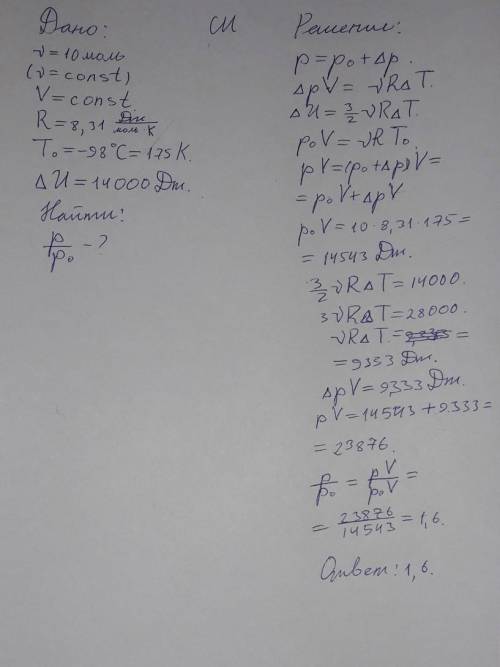 Дано:
ν = 10 моль
(ν = const)
V = const
R = 8,31 Дж/моль К
T₀ = -98°C = 175 K.
ΔU = 14000 Дж.
Найти:
p/p₀ - ?
СИ
Решение:
p = p₀ + Δp.
ΔpV = νRΔT.
ΔU = 3/2 νRΔT.
p₀V = νRT₀
pV = (p₀ + Δp)V =
= p₀V + ΔpV
p₀V = 10 · 8,31 · 175 =
= 14543 Дж.
3/2 νRΔT = 14000.
3νRΔT = 28000.
νRΔT = =
= 9353 Дж.
ΔpV = 9333 Дж.
pV = 14543 + 9333 =
= 23876.
p/p₀ = pV/p₀V =
= 23876/14543 = 1,6.
Ответ: 1,6.